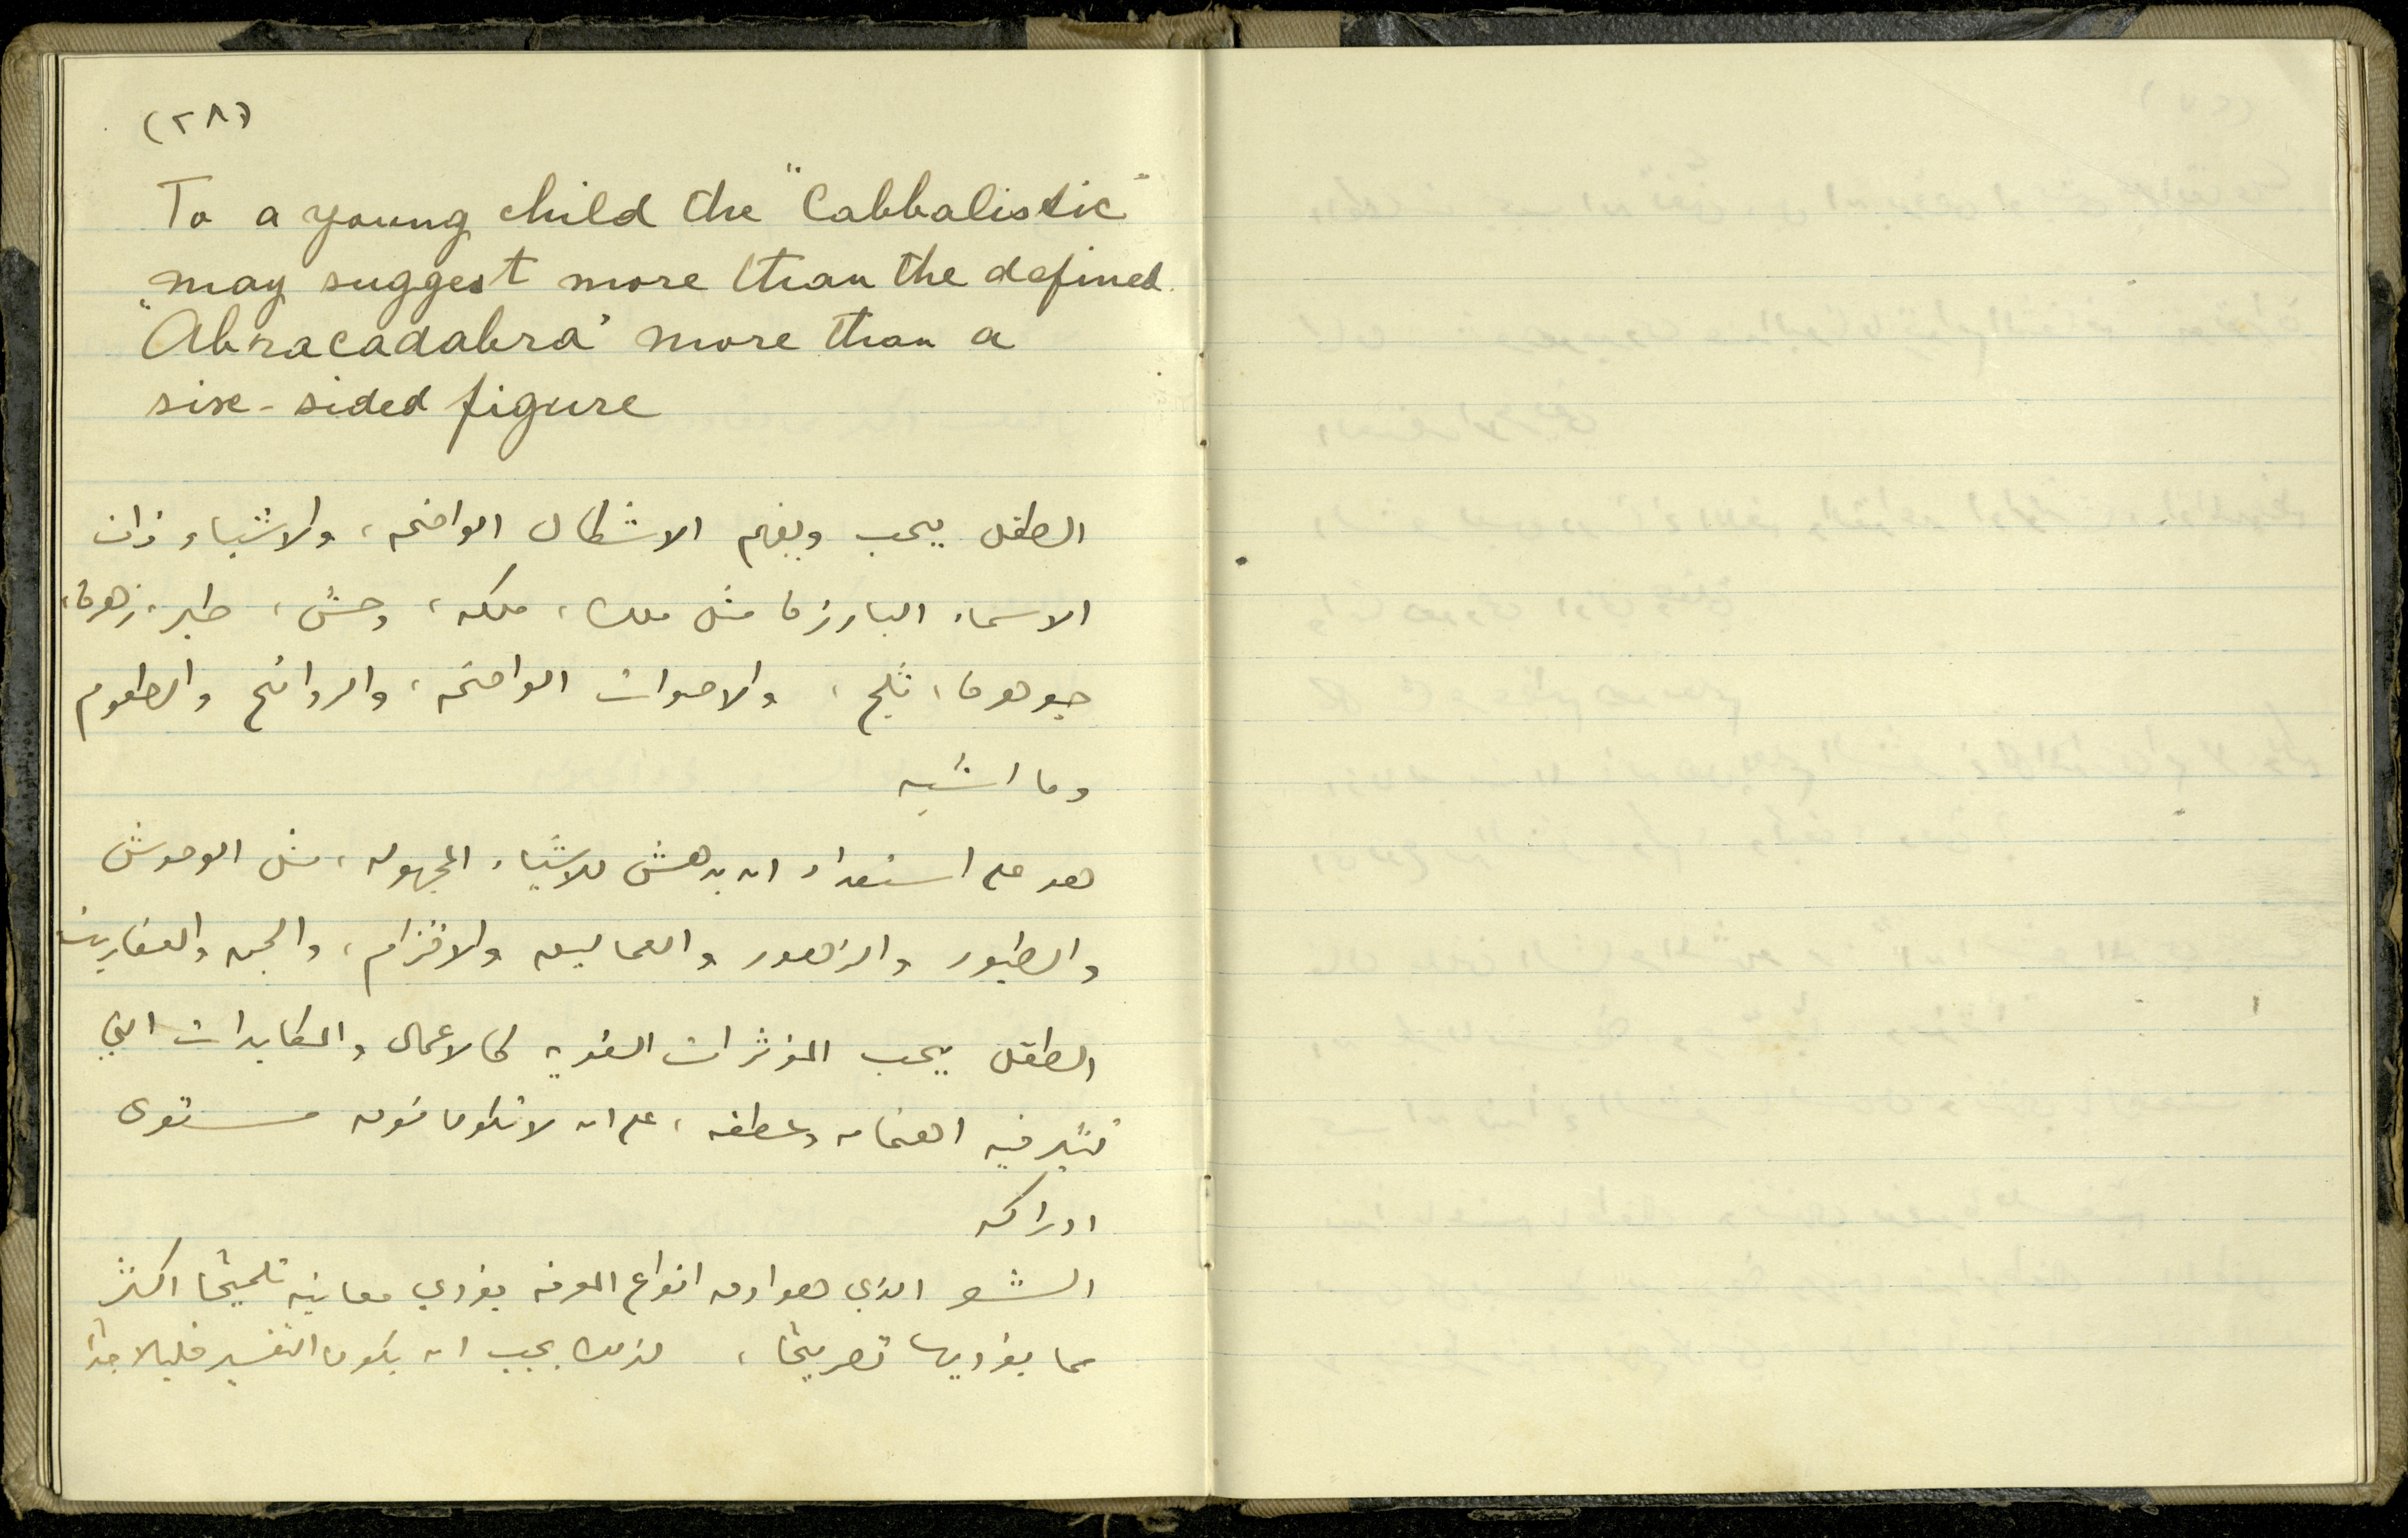 (٢٨)
To a young child the "Cabbalistic"
may suggest more than the defined.
"Abracadabra" more than a
six-sided figure
الطفل يحب ويفهم الاشكال الواضحه، والاشياء ذات
الاسماء البارزة مثل ملك، ملكه، وحش، طير، زهرة،
جوهرة، ثلج، والاصوات الواضحه، والروائح والطعوم
وما اشبه
هو على استعداد ان يدهش للاشياء المجهوله، مثل الوحوش
والطيور والزهور والعماليق والاقزام، والجن والعفاريت
الطفل يحب المؤثرات القويه كالاعمال والمكابدات التي
تثير فيه اهتمامه وعطفه، على ان لا تكون فوق مستوى
ادراكه
الشعر الذي هو ادق انواع المعرفه يؤدي معانيه تلميحًا اكثر
مما يؤديها تصريحًا، لذلك يجب ان يكون التفسير قليلا جدًا